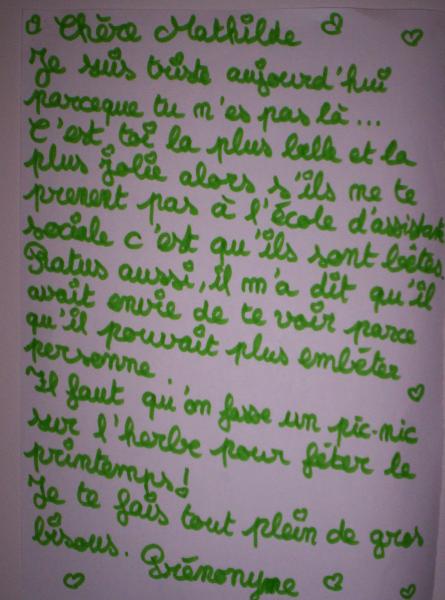 Chère Mathilde
Je suis triste aujourd'hui
parceque tu n'es pas là...
C'est toi la plus belle et la
plus jolie alors s'ils ne te
prenent pas à l'école d'assistante
sociale c'est qu'ils sont bêtes.
Ratus aussi, il m'a dit qu'il
avait envie de te voir parce
qu'il pouvait plus embêter
personne.
Il faut qu'on fasse un pic-nic
sur l'herbe pour fêter le
printemps!
Je te fais tout plein de gros
bisous. Prénonyme